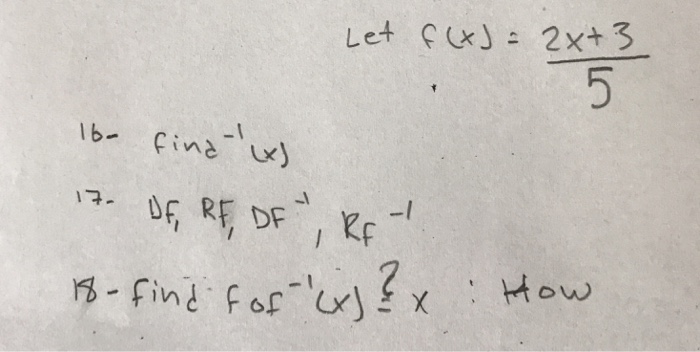 Let f(x) = 2x+3
5
16- find⁻¹(x)
17- DF, RF, DF⁻¹, RF⁻¹
18- find f of⁻¹(x) ≟ x : How